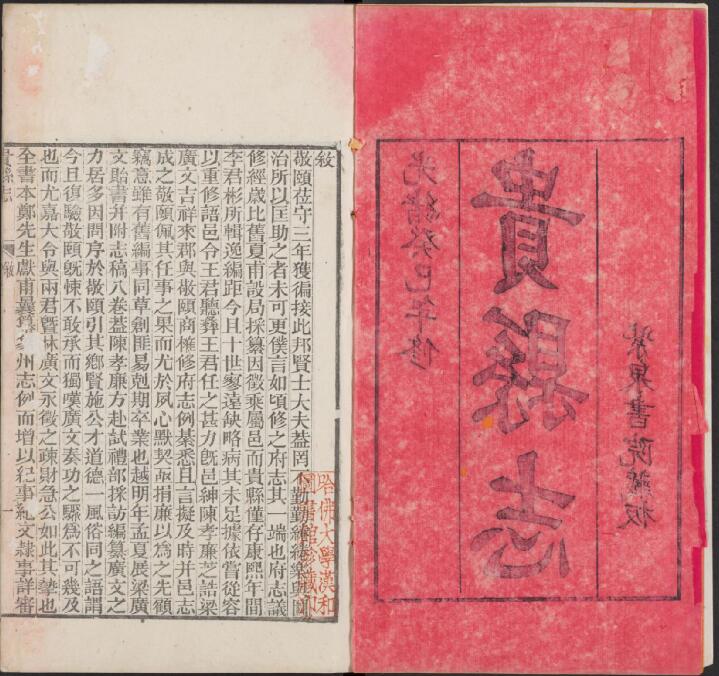 紫泉書院藏板
貴縣志
光緒癸巳年修
敘
敬頤莅守三年獲徧接此邦賢士大夫葢罔不勤勤綣綣樂與圖
治所以匡助之者未可更僕言如頃修之府志其一端也府志議
修經歲比舊夏甫設局採纂因徵乘屬邑而貴縣僅存康熙年間
李君彬所輯逸編距今且十世寥遠缺略病其未足據依嘗從容
以重修語邑令王君聽彝王君任之甚力旣邑紳陳孝廉芝誥梁
廣文吉祥來郡與敬頤商榷修府志例綦悉且言擬及時并邑志
成之敬頤佩其任事之果而尤於夙心默契亟捐廉以爲之先顧
竊意雖有舊編事同草創匪易剋期卒業也越明年孟夏展梁廣
文貽書并附志稿八卷葢陳孝廉方赴試禮部採訪編纂廣文之
力居多因問序於敬頤引其鄉賢施公才道德一風俗同之語謂
今且復驗敬頤旣悚不敢承而獨嘆廣文奏功之驟爲不可幾及
也而尤嘉大令與兩君曁林廣文永徵之疎財急公如此其摯也
全書本鄭先生獻甫州志例而增以紀事紀文隸事詳審
貴縣志 敘 一
哈佛大學漢和
圖書館珍藏印